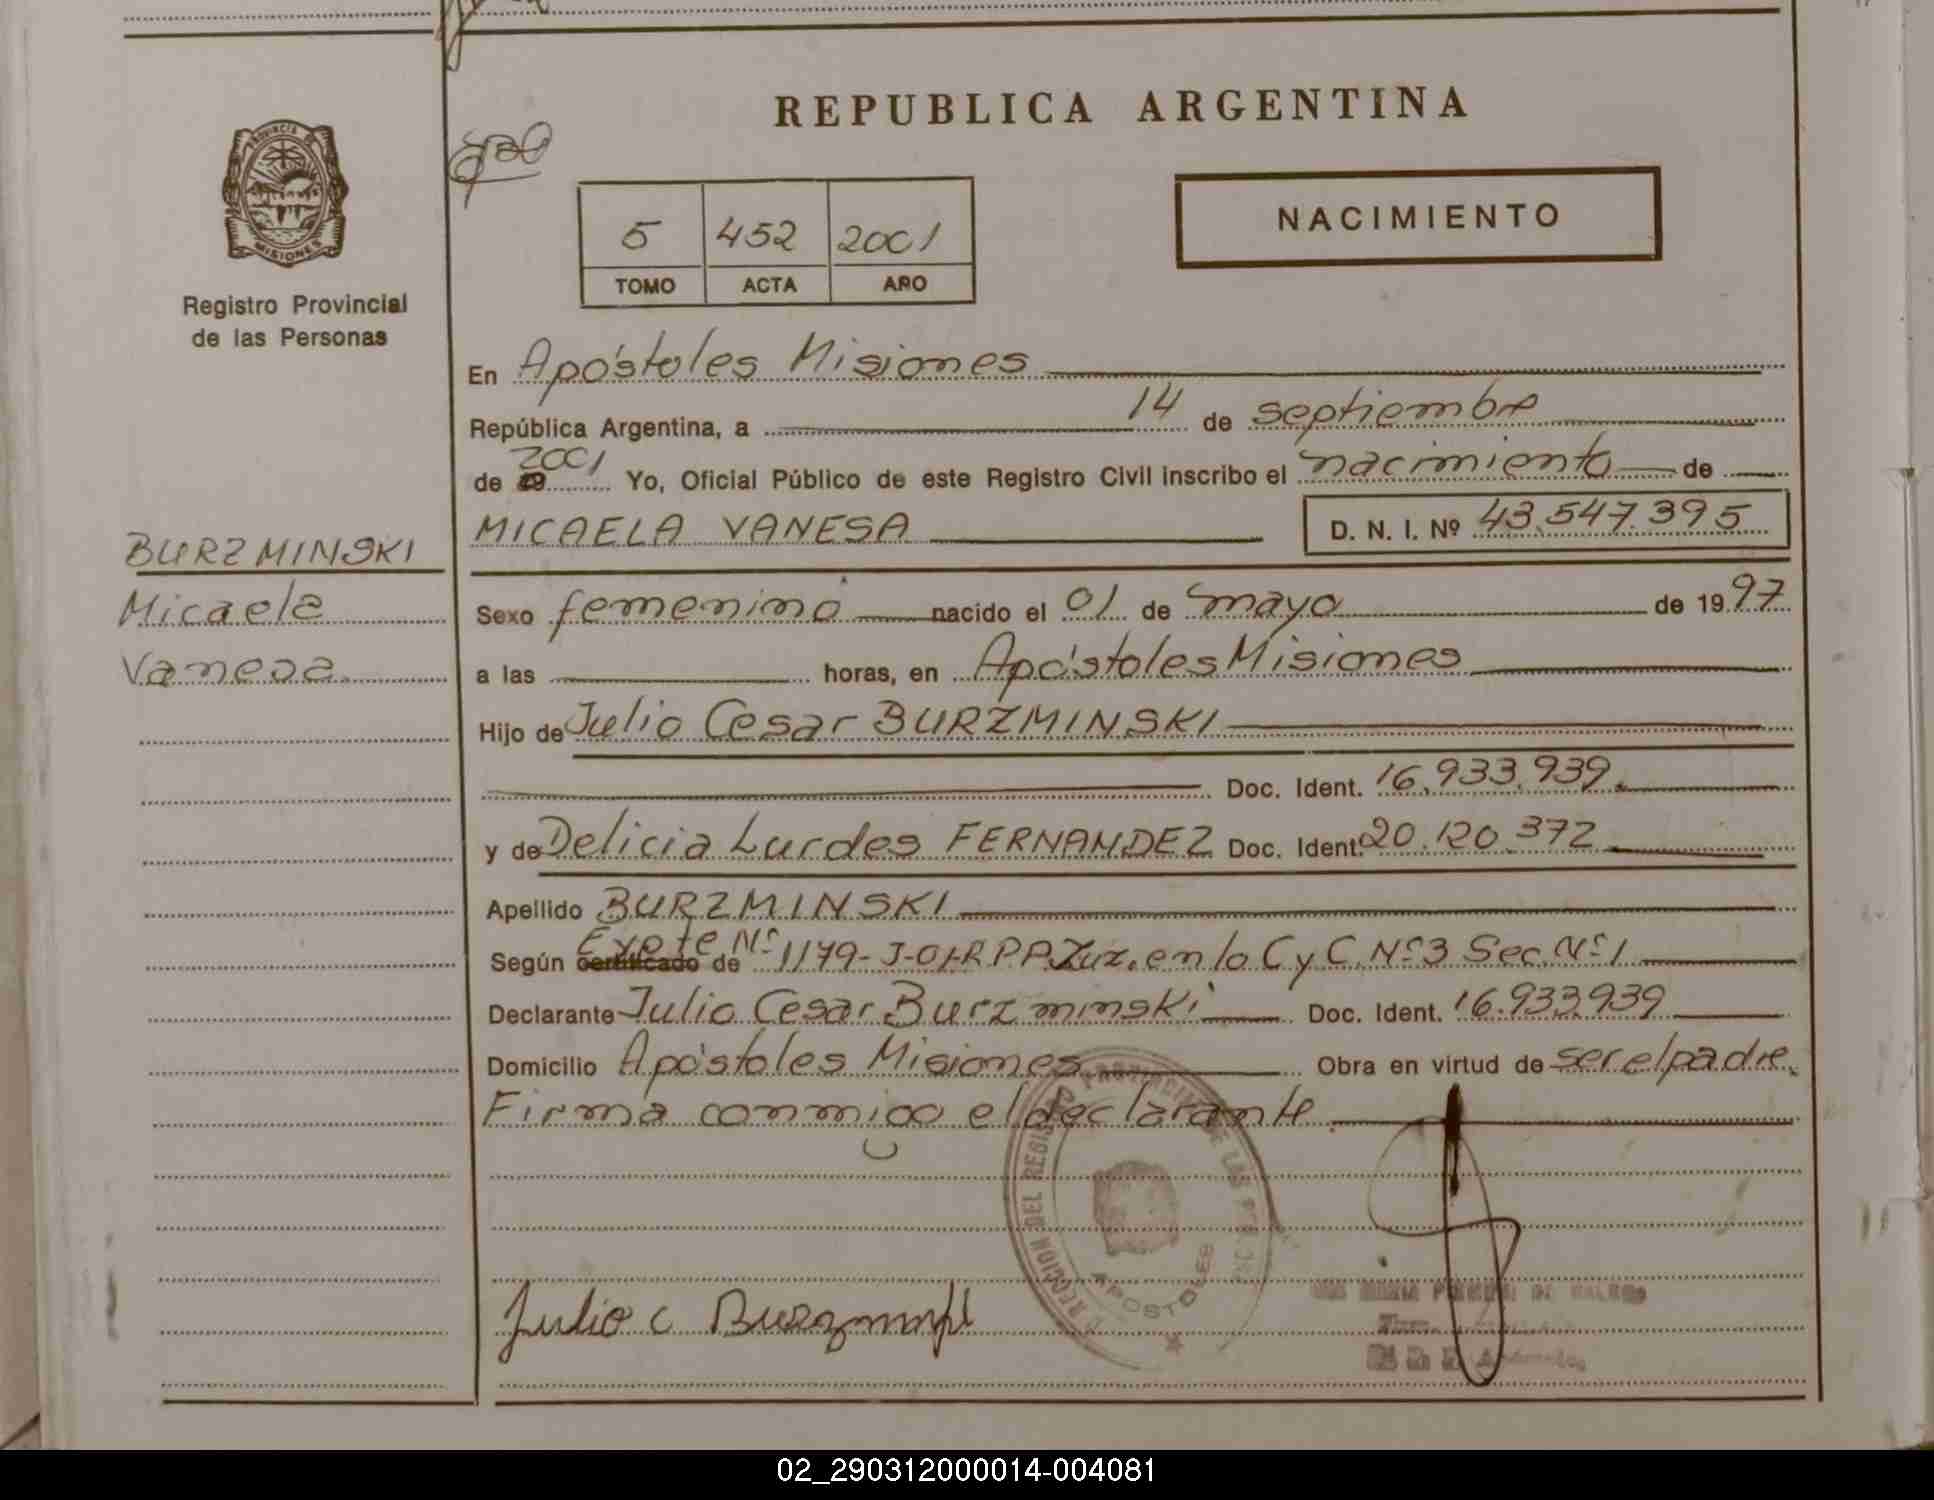 REPUBLICA ARGENTINA
PROVINCIA DE
MISIONES
Registro Provincial
de las Personas
5 452 2001
TOMO ACTA AÑO
NACIMIENTO
En Apóstoles Misiones
República Argentina, a 14 de septiembre
de 19 2001 Yo, Oficial Público de este Registro Civil inscribo el nacimiento de
MICAELA VANESA D. N. I. Nº 43.547.395
BURZMINSKI
Micaela
Vanesa
Sexo femenino nacido el 01 de mayo de 1997
a las horas, en Apóstoles Misiones
Hijo de Julio Cesar BURZMINSKI
Doc. Ident. 16.933.939.
y de Delicia Lurdes FERNANDEZ Doc. Ident. 20.120.372
Apellido BURZMINSKI
Según certificado de Expte Nº 1179-J-01-RPP. Juz. en lo C y C. Nº 3 Sec. Nº 1
Declarante Julio Cesar Burzminski Doc. Ident. 16.933.939
Domicilio Apóstoles Misiones Obra en virtud de ser el padre.
Firma conmigo el declarante.
DIRECCION DEL REGISTRO PROVINCIAL DE LAS PERSONAS
APOSTOLES
Julio C Burzminski
02_290312000014-004081